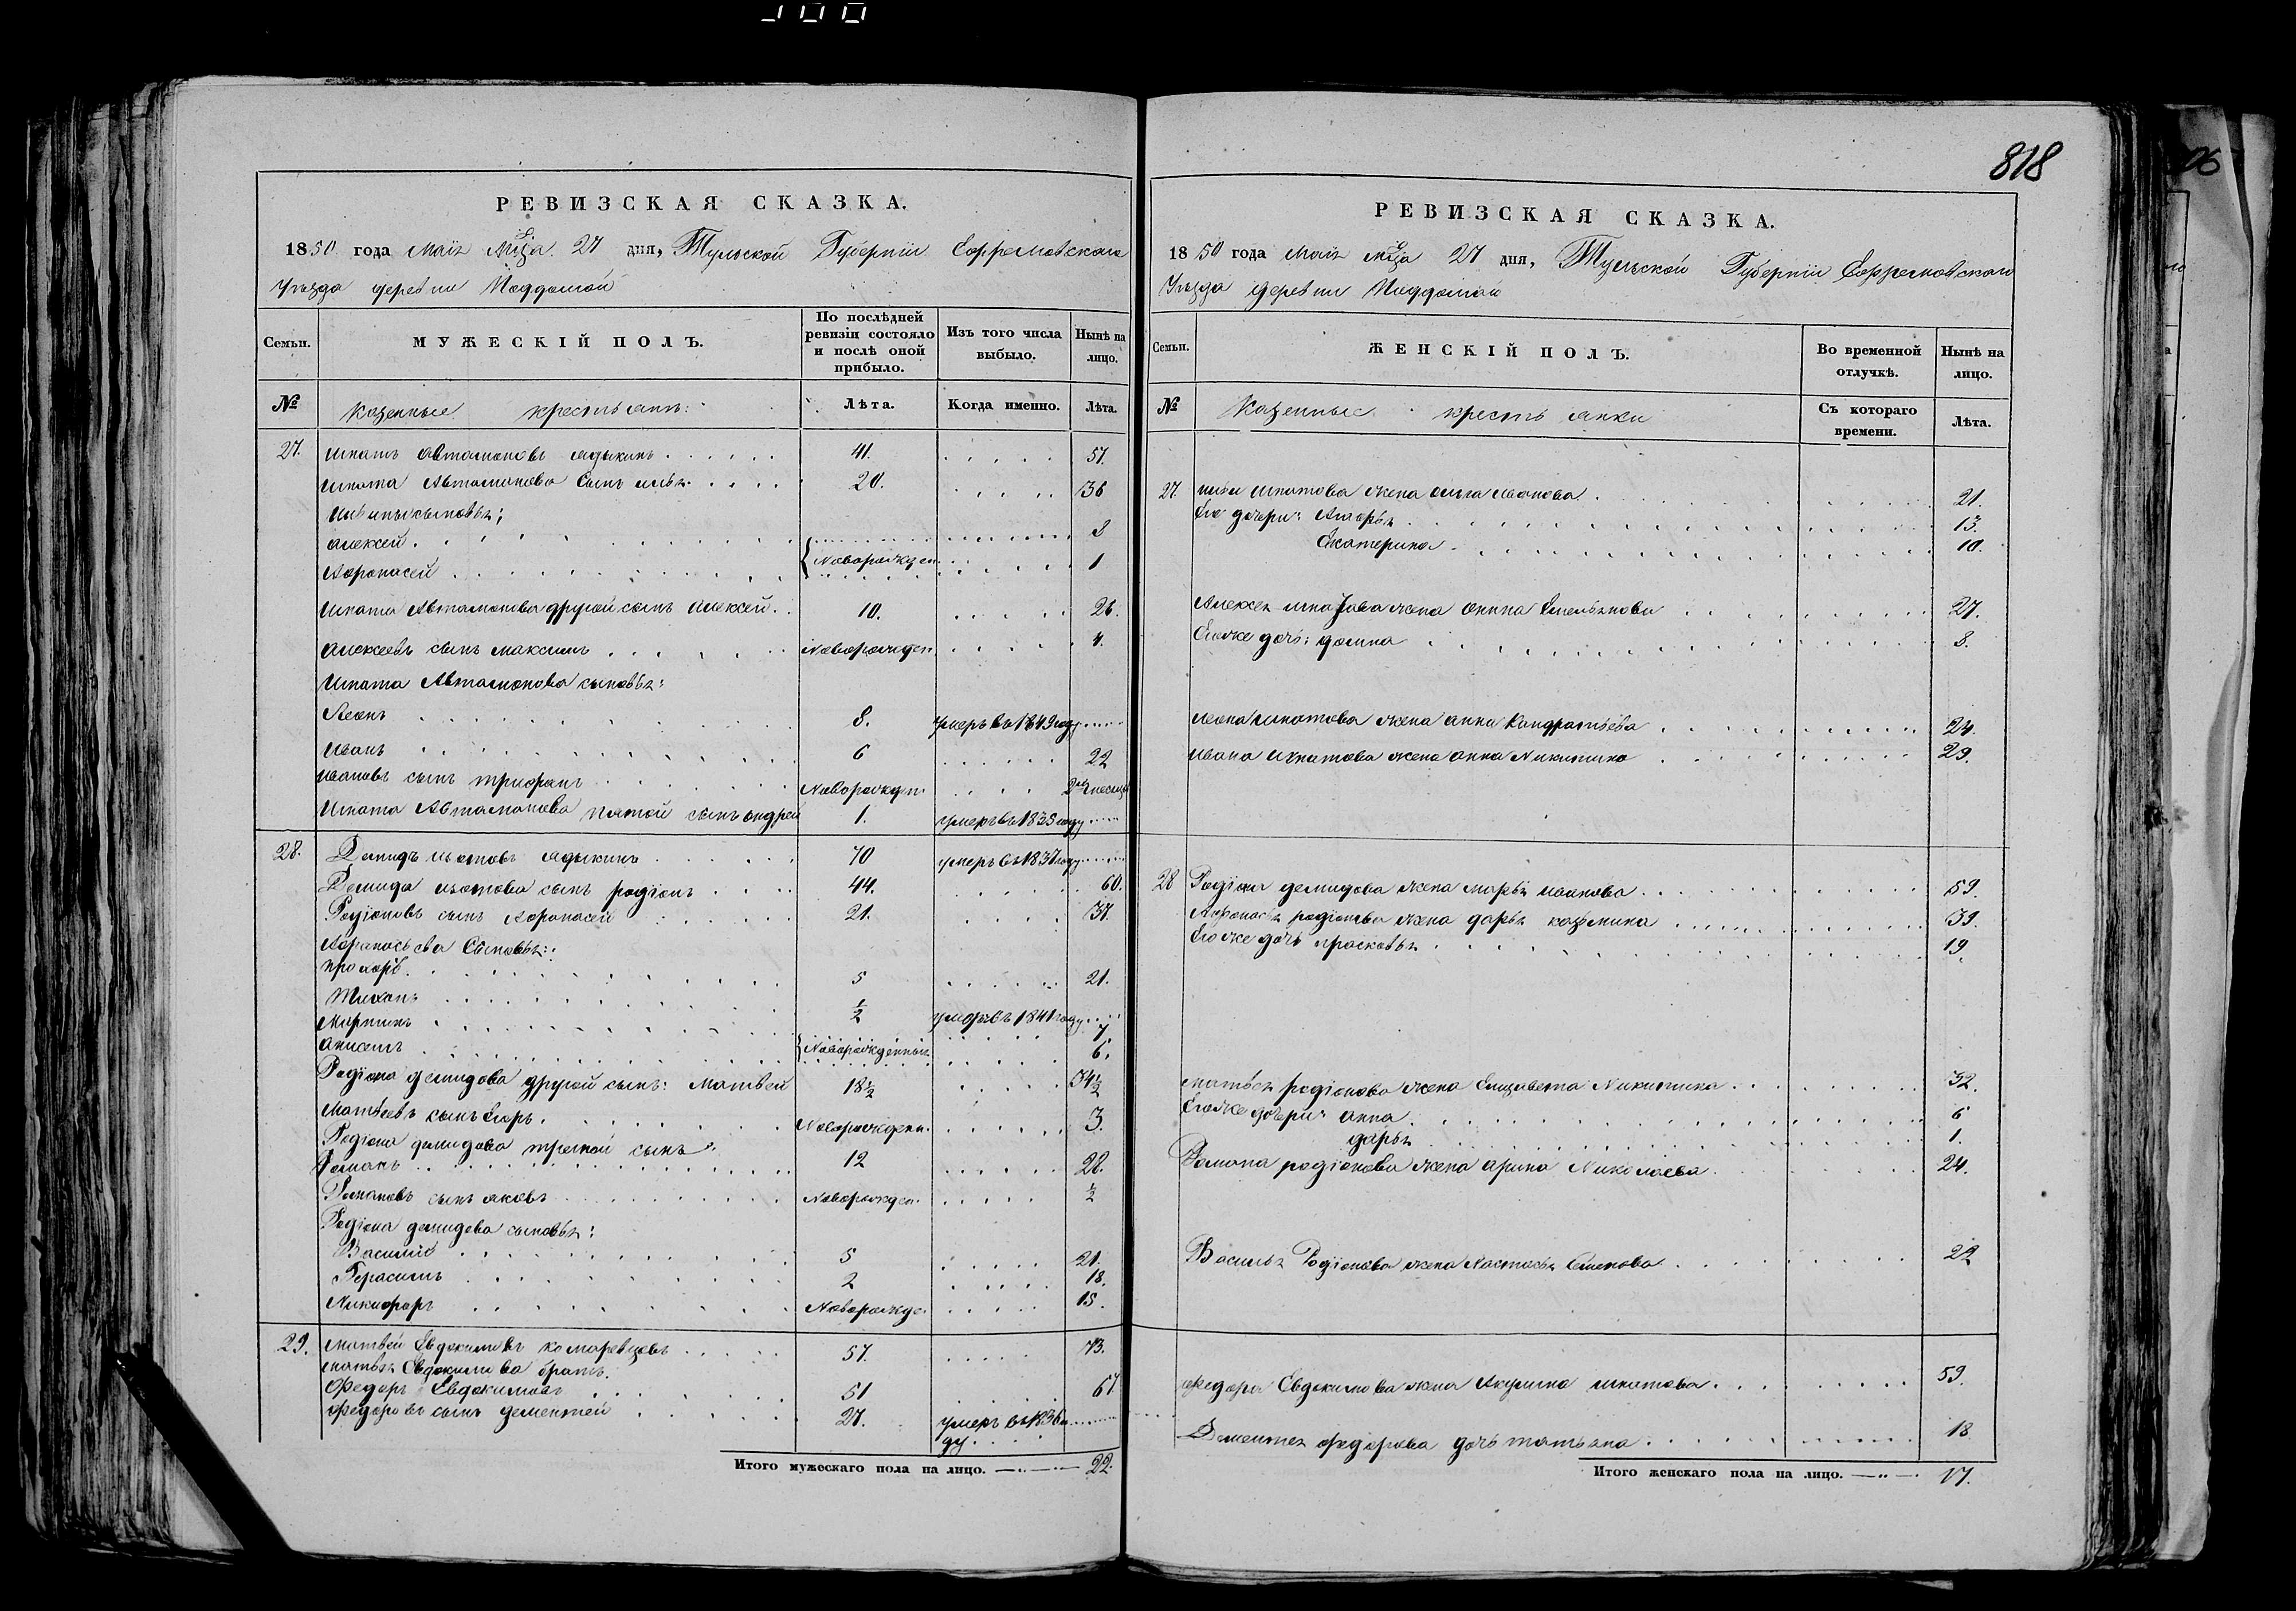 818
РЕВИЗСКАЯ СКАЗКА.
1850 года маія мца 27 дня, Тульской Губерніи Ефремовскаго
Уѣзда деревни
Семьи.
МУЖЕСКІЙ ПОЛЪ.
По послѣдней ревизіи состояло и послѣ оной прибыло.
Изъ того числа выбыло.
Нынѣ на лицо.
№
Казенные крестьяне:
Лѣта.
Когда именно.
Лѣта.
27. Автамоновъ 41. 57.
Автамонова сынъ илья 20. 36
сыновья:
алексей 8
Афонасей Новорожден 1
Ипата Автамонова другой сынъ алексей 10. 26.
алексеевъ сынъ максимъ Новорожден 4.
Ипата Автамонова сыновья:
Леонъ 8. умеръ въ 1849 году
иванъ 6 22
ивановъ сынъ трифанъ Новорожден. 2 месеца
Ипата Автамонова пятой сынъ андрей 1. умеръ въ 1835 году
28. Демидъ изотовъ 70 умеръ въ 1837 году
Демида изотова сынъ родіонъ 44. 60.
Родіоновъ сынъ Афонасей 21. 37.
Афонасьева Сыновья:
прохоръ 5 21.
Тихонъ ½ умеръ въ 1841 году
Мартинъ 7
анисимъ Новорожденныя 6.
Родіона демидова другой сынъ: Матвей 18½ 34½
Матвеевъ сынъ Егоръ Новорожден. 3.
Родіона демидова третей сынъ
Романъ 12 28.
Романовъ сынъ яковъ Новорожден. ½
Родіона демидова сыновья:
Василий 5 21.
Герасимъ 2 18.
Никифоръ Новорожде. 15.
29. матвей Евдокимовъ комаревцовъ 57. 73.
матвея Евдокимова братъ.
Федоръ Евдокимовъ 51 67
Федоровъ сынъ дементей 27. умеръ въ 1836 го
ду
Итого мужескаго пола на лицо. 22.
РЕВИЗСКАЯ СКАЗКА.
1850 года маія мца 27 дня, Тульской Губерніи Ефремовскаго
Уѣзда деревни
Семьи.
ЖЕНСКІЙ ПОЛЪ.
Во временной отлучкѣ.
Нынѣ на лицо.
№
Казенные крестьянки
Съ котораго времени.
Лѣта.
27. ильи ипатова жена иванова 21.
Его дочери: Марья 13.
Екатерина 10.
Алексея ипатова жена анна Емельянова 27.
Егоже дочь: домна 8.
леона ипатова жена анна Кандратьева 24.
ивана ипатова жена анна Никитина 23.
28 Родіона демидова жена марья иванова 59.
Афонася родіонова жена дарья козмина 39.
Егоже дочь прасковья 19.
матвея родіонова жена Елизавета Никитина 32.
Егоже дочери: анна 6
дарья 1.
Романа родіонова жена арина Николаева 24.
Василья Родіонова жена Настасья Семенова 22
федора Евдокимова жена Акулина ипатова 59.
Дементея федорова дочь татьяна 18
Итого женскаго пола на лицо. 17.